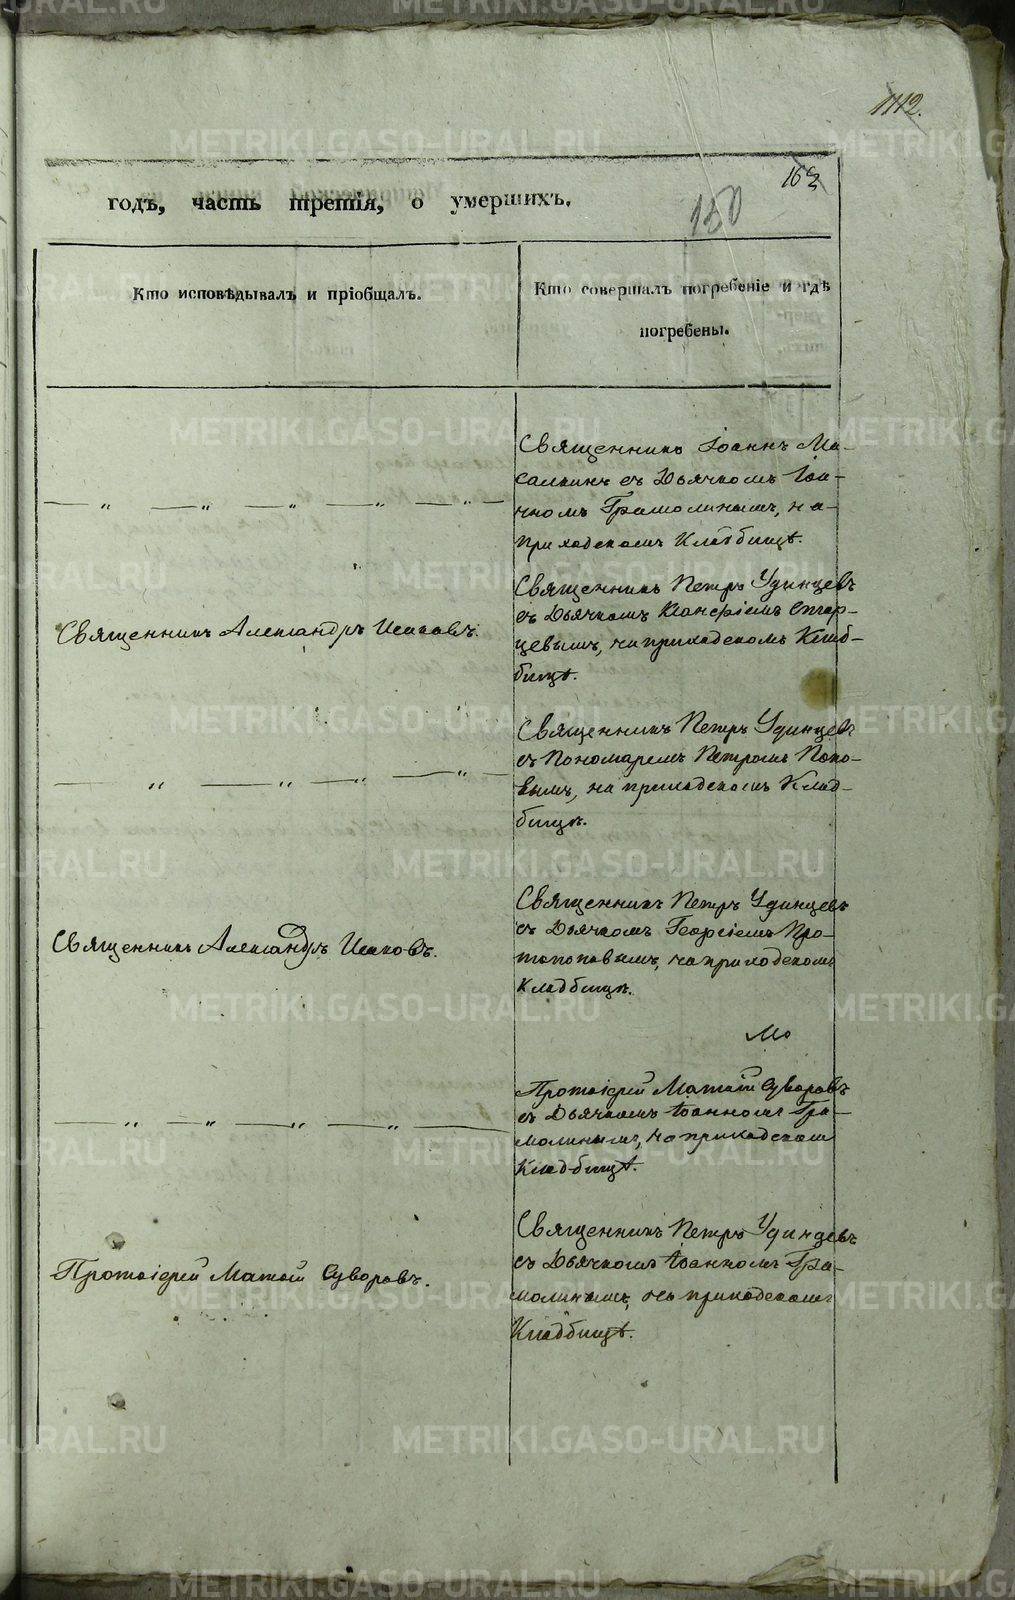 1112.
162
годъ, часть третія, о умершихъ.
150
Кто исповѣдывалъ и пріобщалъ.
Кто совершалъ погребеніе и гдѣ
погребены.
Священникъ Іоаннъ Ма-
салкинъ съ Дьячкомъ Іоан-
номъ Грамолинымъ, на
приходскомъ Кладбищѣ.
Священникъ Александръ Исаковъ.
Священникъ Петръ Удинцевъ
съ Дьячкомъ
цевымъ, на приходскомъ Клад-
бищѣ.
Священникъ Петръ Удинцевъ
съ Пономаремъ Петромъ Попо-
вымъ, на приходскомъ Клад-
бищѣ.
Священникъ Александръ Исаковъ.
Священникъ Петръ Удинцевъ
съ Дьячкомъ Георгіемъ Про-
топоповымъ, на приходскомъ
Кладбищѣ.
Протоіерей Матѳій Суворовъ
съ Дьячкомъ Іоанномъ Гра-
молинымъ, на приходскомъ
Кладбищѣ.
Протоіерей Матѳій Суворовъ.
Священникъ Петръ Удинцевъ
съ Дьячкомъ Іоанномъ Гра-
молинымъ, на приходскомъ
Кладбищѣ.
METRIKI.GASO-URAL.RU